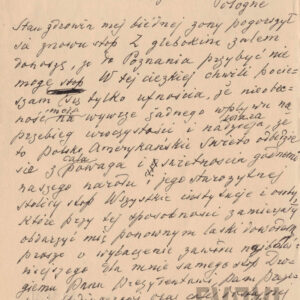 Pologne
Stan zdrowia mej biednej żony pogorszył
się znowu stop Z głębokim żalem
donoszę, że do Poznania przybyć nie
mogę stop W tej ciężkiej chwili pocie-
szam się tylko ufnością, że nieobec-
ność moja nie wywrze żadnego wpływu na
przebieg uroczystości i nadzieją, że
to Polsko Amerykańskie Święto odbędzie
się z całą powagą i świetnością godnemi
naszego narodu i jego starożytnej
stolicy stop Wszystkie instytucje i osoby
które przy tej sposobności zamierzały
obdarzyć mię ponownym łaski dowodem
proszę o wybaczenie zawodu
niejszego dla mnie samego stop Dro-
giemu Panu Prezydentowi